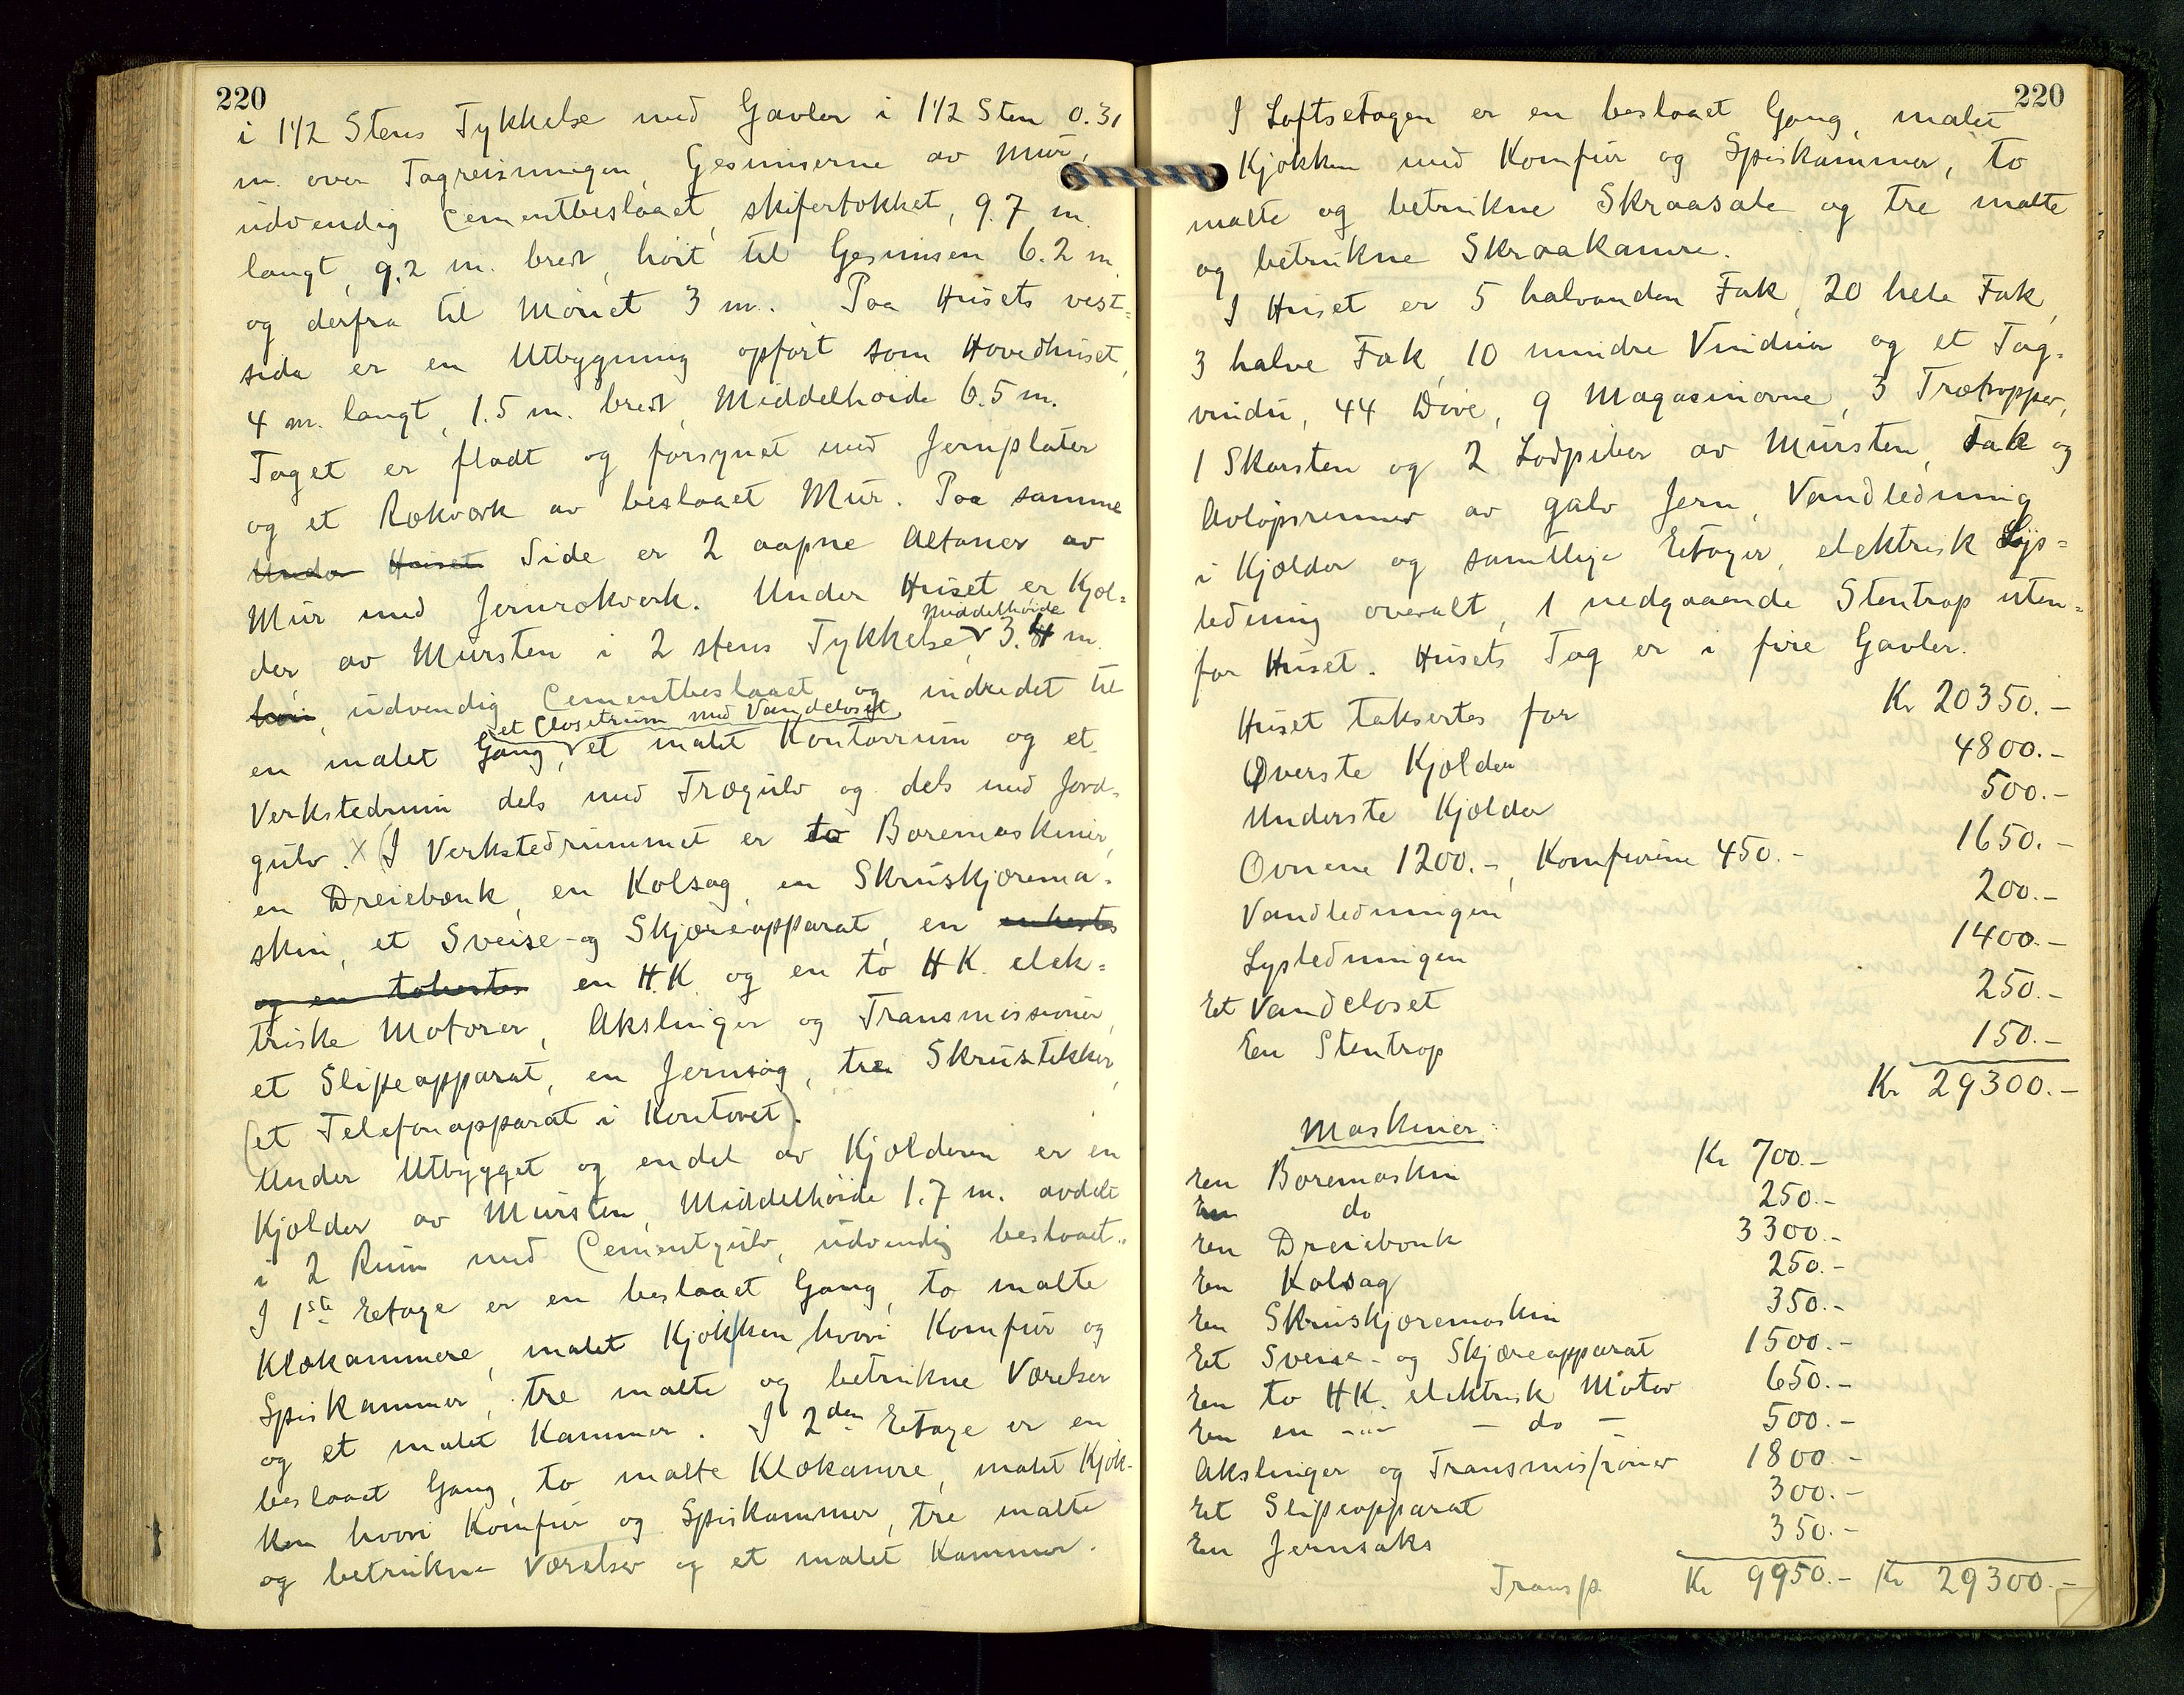 220
i 1 1/2 Stens Tykkelse med Gavler i 1 1/2 Sten 0.31
m. over Tagreisningen, Gesimserne av Mur,
udvendig Cementbeslaaet, skifertækket, 9.7 m.
langt, 9.2 m. bredt, höit til Gesimsen 6.2 m.
og derfra til Mönet 3 m. Paa Husets vest-
side er en Utbygning opfört som Hovedhuset,
4 m. langt, 1.5 m. bredt, Middelhöide 6.5 m.
Taget er fladt og forsynet med Jernplater
og et Rækværk av beslaaet Mur. Paa samme
Under Huset Side er 2 aapne Altaner av
Mur med Jernrækverk. Under Huset er Kjæl-
Middelhöide
der av Mursten i 2 stens Tykkelse, 3. m.
höi, udvendig Cementbeslaaet og indredet til
et Closetrum med Vandcloset
en malet Gang, et malet Kontorrum og et
Verkstedrum dels med Trægulv og dels med Jord-
gulv. X (I Verkstedrummet er to Boremaskiner,
en Dreiebænk, en Kolsag, en Skruskjærema-
skin, et Sveise- og Skjæreapparat, en enhests
og en tohestes en H.K. og en to H.K. elek-
triske Motorer, Akslinger og Transmissioner,
et Slipeapparat, en Jernsag, tre Skrustikker,
(et Telefonapparat i Kontoret).
Under Utbygget og endel av Kjælderen er en
Kjælder av Mursten, Middelhöide 1.7 m. avdelt
i 2 Rum med Cementgulv, udvendig beslaaet.
I 1ste Etage er en beslaaet Gang, to malte
Klækammere, malet Kjökken hvori Komfur og
Spiskammer, tre malte og betrukne Værelser
og et malet Kammer. I 2den Etage er en
beslaaet Gang, to malte Klækamre, malet Kjök-
ken hvori Komfur og Spiskammer, tre malte
og betrukne Værelser og et malet Kammer.
220
I Loftsetagen er en beslaaet Gang, malet
Kjökken med Komfur og Spiskammer, to
malte og betrukne Skraasale og tre malte
og betrukne Skraakamre.
I Huset er 5 halvanden Fak, 20 hele Fak,
3 halve Fak, 10 mindre Vinduer og et Tag-
vindu, 44 Döre, 9 Magasinovne, 3 Trætrapper,
1 Skorsten og 2 Lodpiber av Mursten, Tak og
Avlöpsrenner av galv Jern, Vandledning
i Kjælder og samtlige Etager, elektrisk Lys-
ledning overalt, 1 nedgaaende Stentrap uten-
for Huset. Husets Tag er i fire Gavler.
Huset taksertes for Kr 20350.-
Øverste Kjælder 4800.-
Underste Kjælder 500.-
Ovnene 1200.-, Komfurene 450.- 1650.-
Vandledningen 200.-
Lysledningen 1400.-
Et Vandcloset 250.-
En Stentrap 150.-
Kr 29300.-
Maskiner:
En Boremaskin Kr 700.-
En do 250.-
En Dreiebænk 3300.-
En Kolsag 250.-
En Skruskjæremaskin 350.-
Et Sveise- og Skjæreapparat 1500.-
En to H.K. elektrisk Motor 650.-
En en -„- - do - 500.-
Akslinger og Transmissioner 1800.-
Et Slipeapparat 300.-
En Jernsaks 350.-
Transp. Kr 9950.- Kr 29300.-